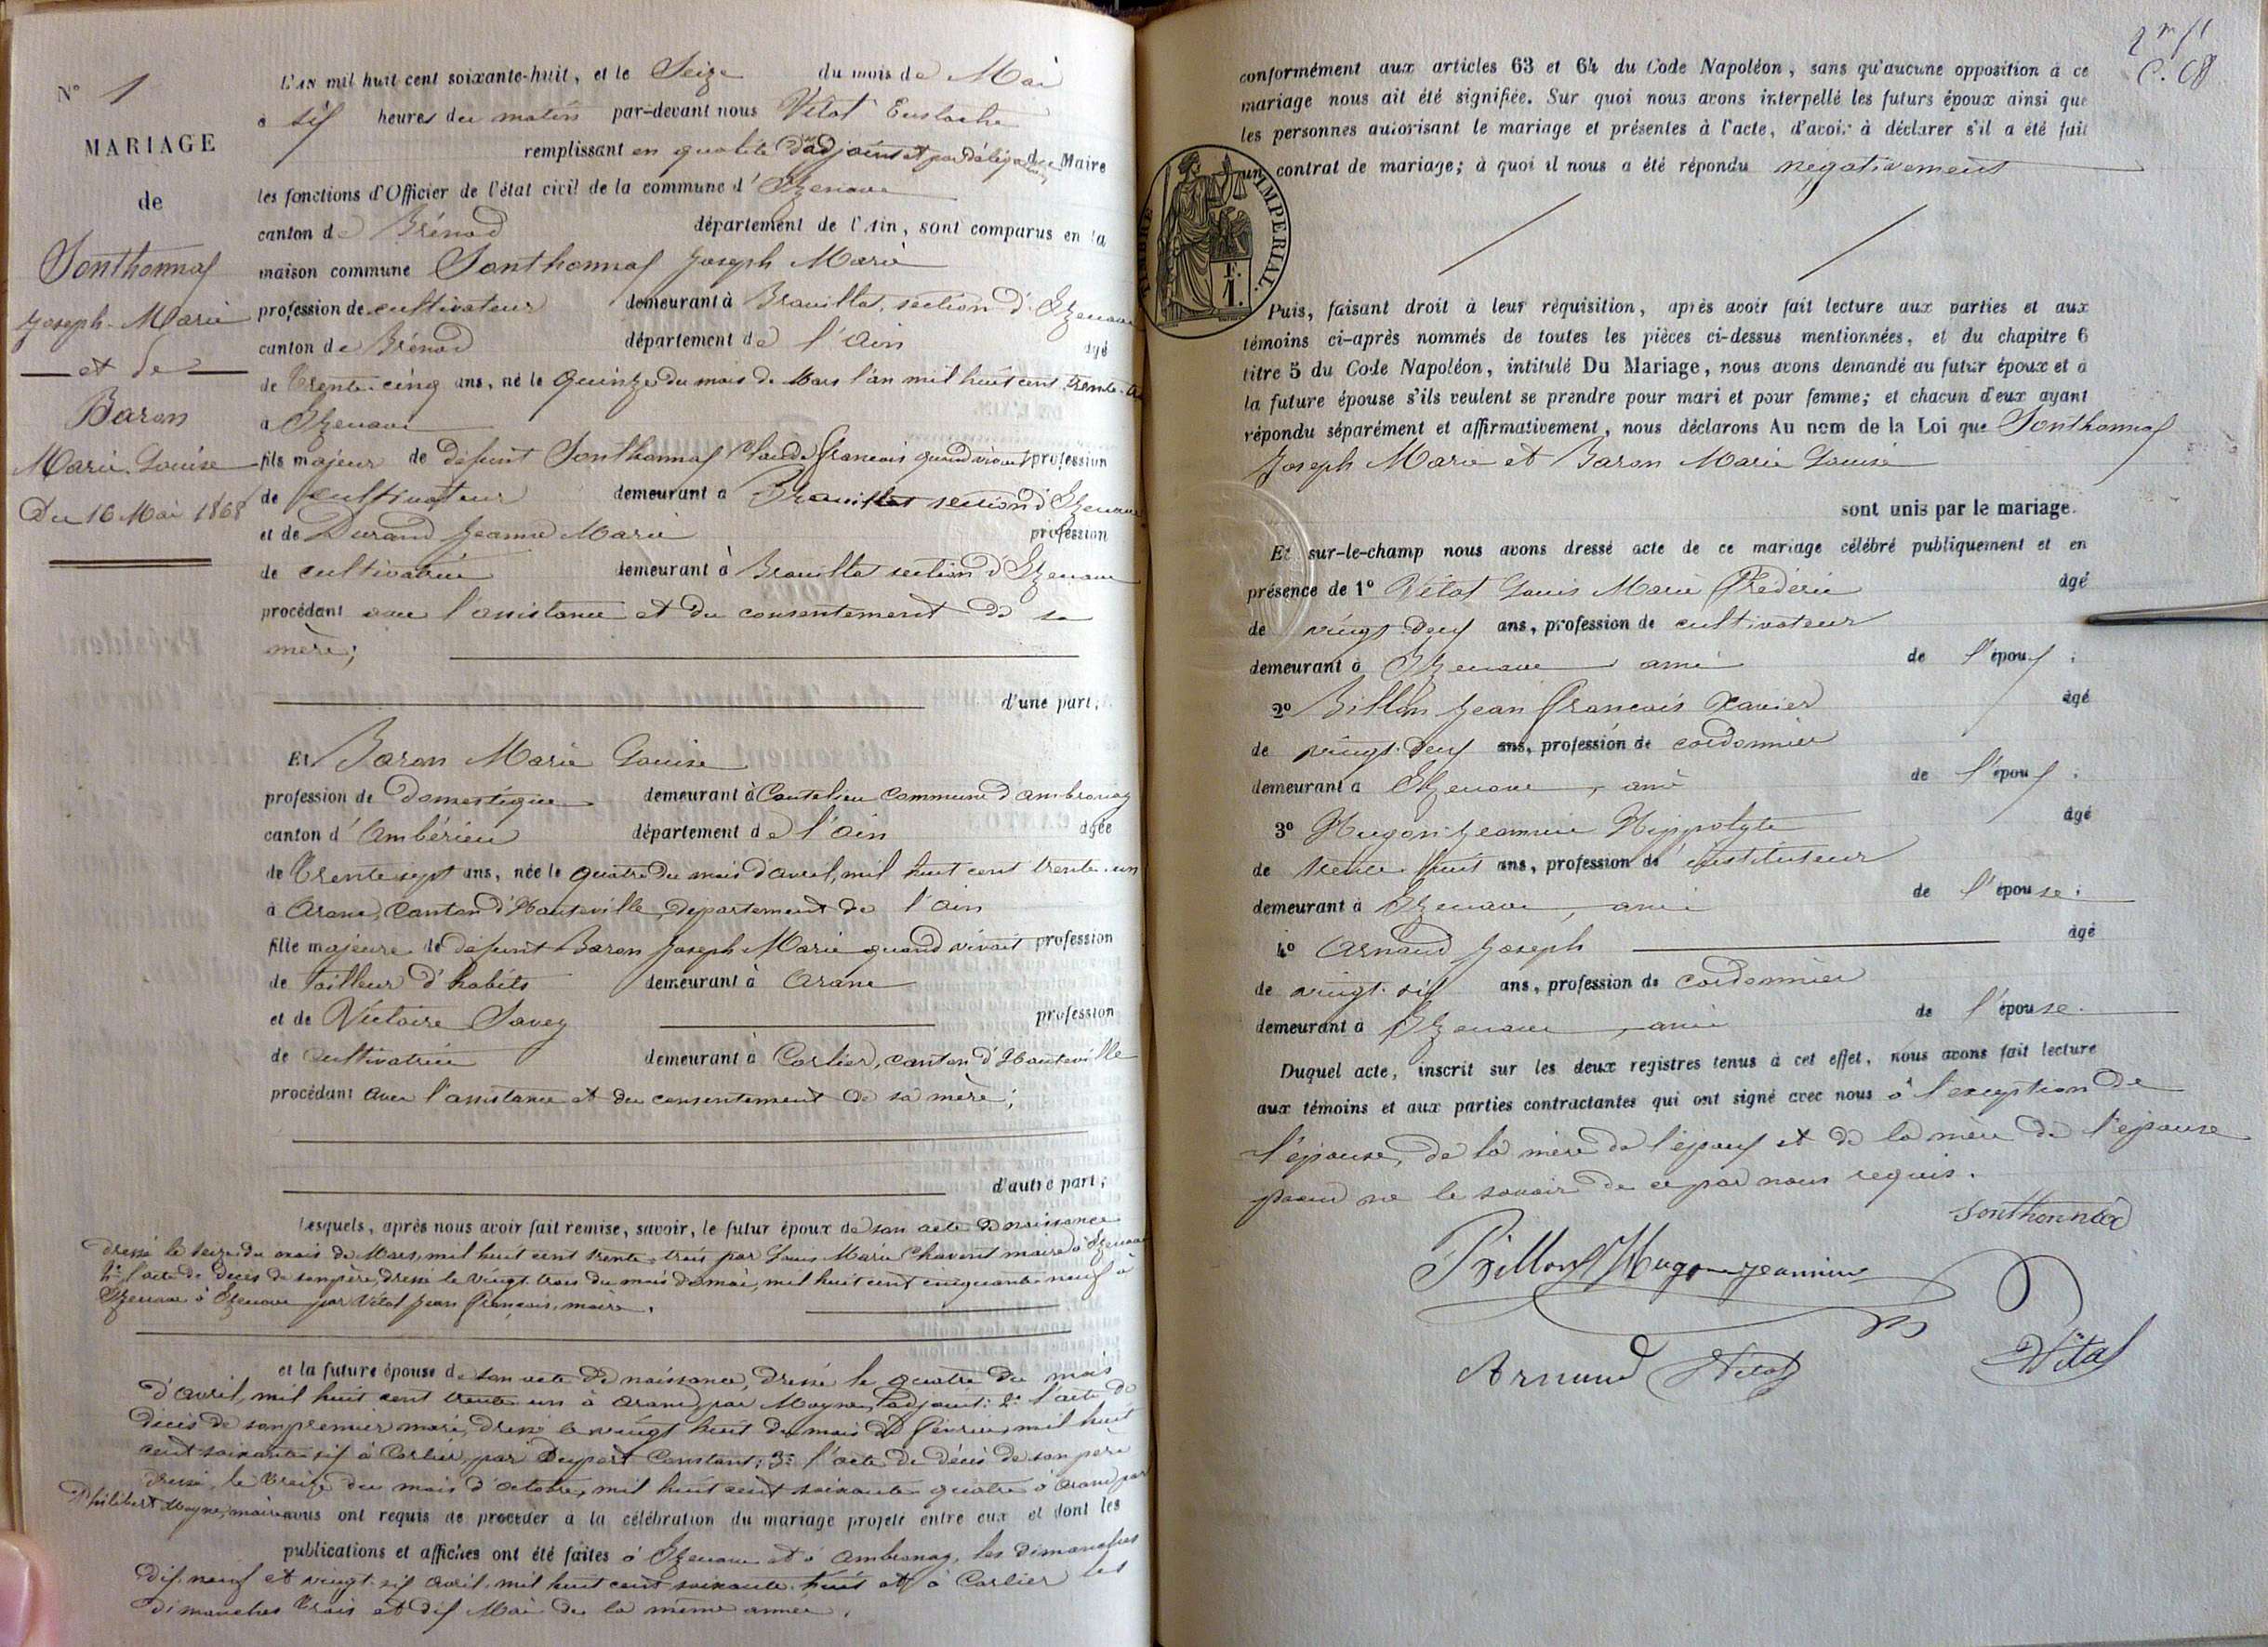 N° 1
MARIAGE
de
Sonthonnax
Joseph-Marie
et de
Baron
Marie Louise
Du 16 Mai 1868
L'an mil huit cent soixante-huit, et le Seize du mois de Mai
à six heures du matin par-devant nous Vitot Eustache
remplissant en qualité d'adjoint et par délégation du Maire
les fonctions d'Officier de l'état civil de la commune d'Izenave
canton de Brénod département de l'Ain, sont comparus en la
maison commune Sonthonnax Joseph Marie
profession de cultivateur demeurant à Brouillat, section d'Izenave
canton de Brénod département de l'Ain âgé
de trente-cinq ans, né le quinze du mois de Mars l'an mil huit cent trente-
à Izenave
fils majeur de défunt Sonthonnax Claude François quand vivait profession
de cultivateur demeurant à Brouillat section d'Izenave
et de Durand Jeanne Marie profession
de cultivatrice demeurant à Brouillat section d'Izenave
procédant avec l'assistance et du consentement de sa
mère;
d'une part;
Et Baron Marie Louise
profession de domestique demeurant à Coutelieu Commune d'Ambronay
canton d'Ambérieu département de l'Ain âgée
de trente sept ans, née le quatre du mois d'avril, mil huit cent trente-un
à Aranc, Canton d'Hauteville, département de l'Ain
fille majeure de défunt Baron Joseph Marie quand vivait profession
de tailleur d'habits demeurant à Aranc
et de Victoire Savey profession
de cultivatrice demeurant à Corlier, canton d'Hauteville
procédant avec l'assistance et du consentement de sa mère;
d'autre part;
Lesquels, après nous avoir fait remise, savoir, le futur époux de son acte de naissance
dressé le seize du mois de Mars, mil huit cent trente-trois par Louis Marie Chavent maire à Izenave
2° l'acte de décès de son père, dressé le vingt-trois du mois de mai, mil huit cent cinquante neuf à
Izenave à Izenave par Vitot Jean François, maire.
et la future épouse de son acte de naissance, dressé le quatre du mois
d'avril, mil huit cent trente un à Aranc, par Moyne, adjoint; 2° l'acte de
décès de son premier mari, dressé le vingt huit du mois de Février, mil huit
cent soixante six à Corlier, par Dupert Constant; 3° l'acte de décès de son père
dressé, le treize du mois d'octobre, mil huit cent soixante quatre à Aranc, par
Philibert Moyne, maire nous ont requis de procéder à la célébration du mariage projeté entre eux et dont les
publications et affiches ont été faites à Izenave et à Ambronay, les dimanches
dix-neuf et vingt-six avril, mil huit cent soixante-huit et à Corlier les
dimanches trois et dix Mai de la même année.
conformément aux articles 63 et 64 du Code Napoléon, sans qu'aucune opposition à ce
mariage nous ait été signifiée. Sur quoi nous avons interpellé les futurs époux ainsi que
les personnes autorisant le mariage et présentes à l'acte, d'avoir à déclarer s'il a été fait
un contrat de mariage; à quoi il nous a été répondu négativement
TIMBRE IMPERIAL.
F.
1.
Puis, faisant droit à leur réquisition, après avoir fait lecture aux parties et aux
témoins ci-après nommés de toutes les pièces ci-dessus mentionnées, et du chapitre 6
titre 5 du Code Napoléon, intitulé Du Mariage, nous avons demandé au futur époux et à
la future épouse s'ils veulent se prendre pour mari et pour femme; et chacun d'eux ayant
répondu séparément et affirmativement, nous déclarons Au nom de la Loi que Sonthonnax
Joseph Marie et Baron Marie Louise
sont unis par le mariage.
Et sur-le-champ nous avons dressé acte de ce mariage célébré publiquement et en
présence de 1° Vitot Louis Marie Frédéric âgé
de vingt-deux ans, profession de cultivateur
demeurant à Izenave ami de l'époux;
2° Billon Jean François Xavier âgé
de vingt-deux ans, profession de cordonnier
demeurant à Izenave, ami de l'époux;
3° Hugon-Jeannin Hippolyte âgé
de trente-huit ans, profession d'instituteur
demeurant à Izenave, ami de l'épouse;
4° Arnaud Joseph âgé
de vingt-six ans, profession de cordonnier
demeurant à Izenave, ami de l'épouse.
Duquel acte, inscrit sur les deux registres tenus à cet effet, nous avons fait lecture
aux témoins et aux parties contractantes qui ont signé avec nous à l'exception de
l'épouse, de la mère de l'époux et de la mère de l'épouse
pour ne le savoir de ce par nous requis.
Sonthonnax
Billon Hugon-Jeannin
Arnaud Vitot Vitot